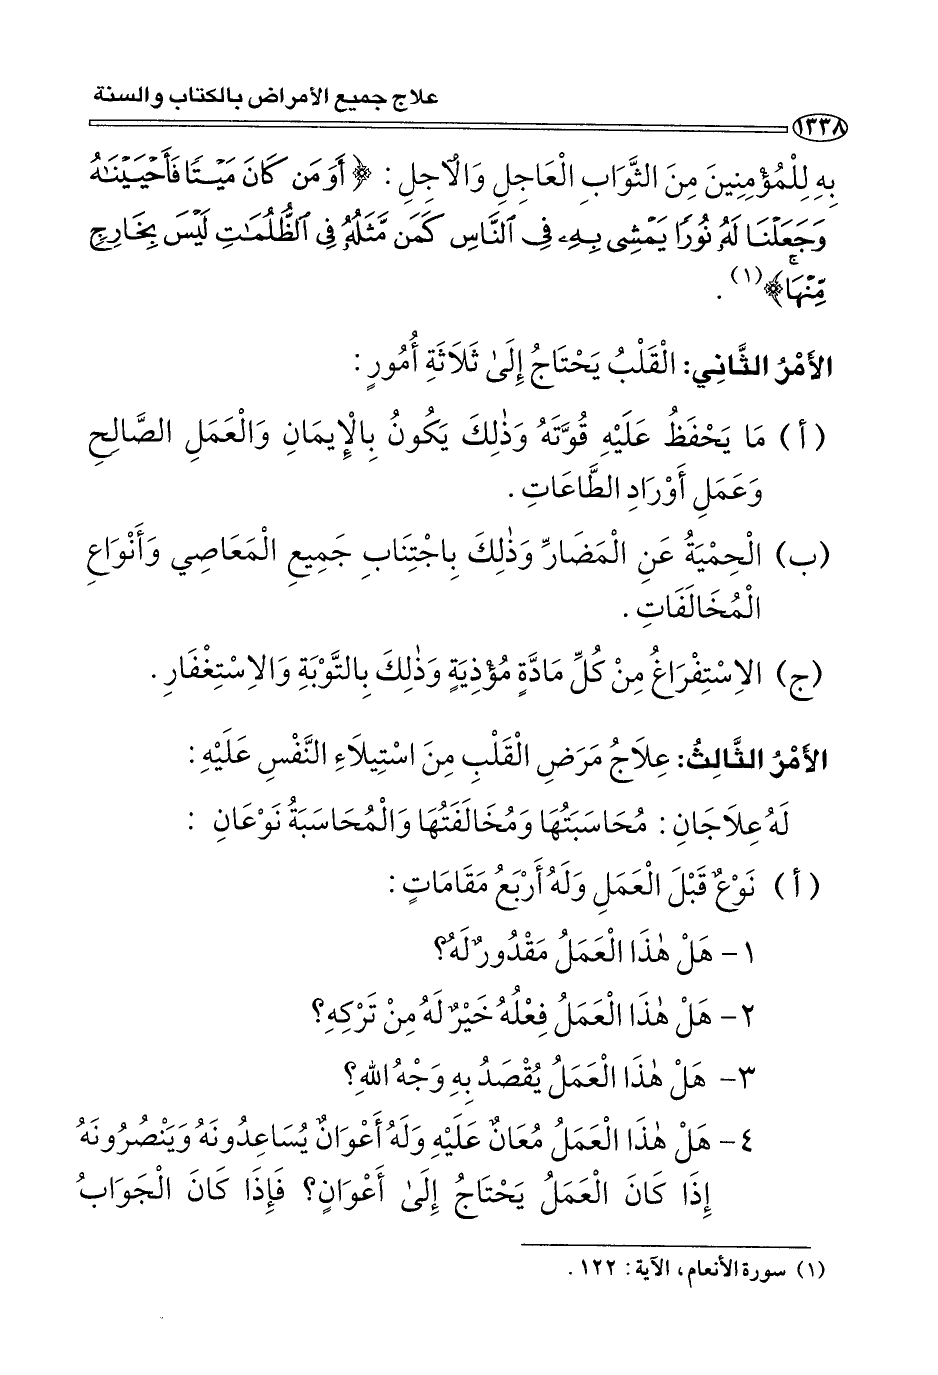 علاج جميع الأمراض بالكتاب والسنة
١٣٣٨
بِهِ لِلْمُؤْمِنِينَ مِنَ الثَّوَابِ الْعَاجِلِ وَالْآجِلِ : ﴿ أَوَمَن كَانَ مَيْتًا فَأَحْيَيْنَٰهُ
وَجَعَلْنَا لَهُۥ نُورًا يَمْشِى بِهِۦ فِى ٱلنَّاسِ كَمَن مَّثَلُهُۥ فِى ٱلظُّلُمَٰتِ لَيْسَ بِخَارِجٍ
مِّنْهَاۚ ﴾(١) .
الأَمْرُ الثَّانِي: الْقَلْبُ يَحْتَاجُ إِلَىٰ ثَلَاثَةِ أُمُورٍ :
(أ) مَا يَحْفَظُ عَلَيْهِ قُوَّتَهُ وَذٰلِكَ يَكُونُ بِالْإِيمَانِ وَالْعَمَلِ الصَّالِحِ
وَعَمَلِ أَوْرَادِ الطَّاعَاتِ .
(ب) الْحِمْيَةُ عَنِ الْمَضَارِّ وَذٰلِكَ بِاجْتِنَابِ جَمِيعِ الْمَعَاصِي وَأَنْوَاعِ
الْمُخَالَفَاتِ .
(ج) الِاسْتِفْرَاغُ مِنْ كُلِّ مَادَّةٍ مُؤْذِيَةٍ وَذٰلِكَ بِالتَّوْبَةِ وَالِاسْتِغْفَارِ .
الأَمْرُ الثَّالِثُ: عِلَاجُ مَرَضِ الْقَلْبِ مِنَ اسْتِيلَاءِ النَّفْسِ عَلَيْهِ :
لَهُ عِلَاجَانِ : مُحَاسَبَتُهَا وَمُخَالَفَتُهَا وَالْمُحَاسَبَةُ نَوْعَانِ :
(أ) نَوْعٌ قَبْلَ الْعَمَلِ وَلَهُ أَرْبَعُ مَقَامَاتٍ :
١- هَلْ هٰذَا الْعَمَلُ مَقْدُورٌ لَهُ؟
٢- هَلْ هٰذَا الْعَمَلُ فِعْلُهُ خَيْرٌ لَهُ مِنْ تَرْكِهِ؟
٣- هَلْ هٰذَا الْعَمَلُ يُقْصَدُ بِهِ وَجْهُ اللهِ؟
٤- هَلْ هٰذَا الْعَمَلُ مُعَانٌ عَلَيْهِ وَلَهُ أَعْوَانٌ يُسَاعِدُونَهُ وَيَنْصُرُونَهُ
إِذَا كَانَ الْعَمَلُ يَحْتَاجُ إِلَىٰ أَعْوَانٍ؟ فَإِذَا كَانَ الْجَوَابُ
(١) سورة الأنعام، الآية : ١٢٢ .